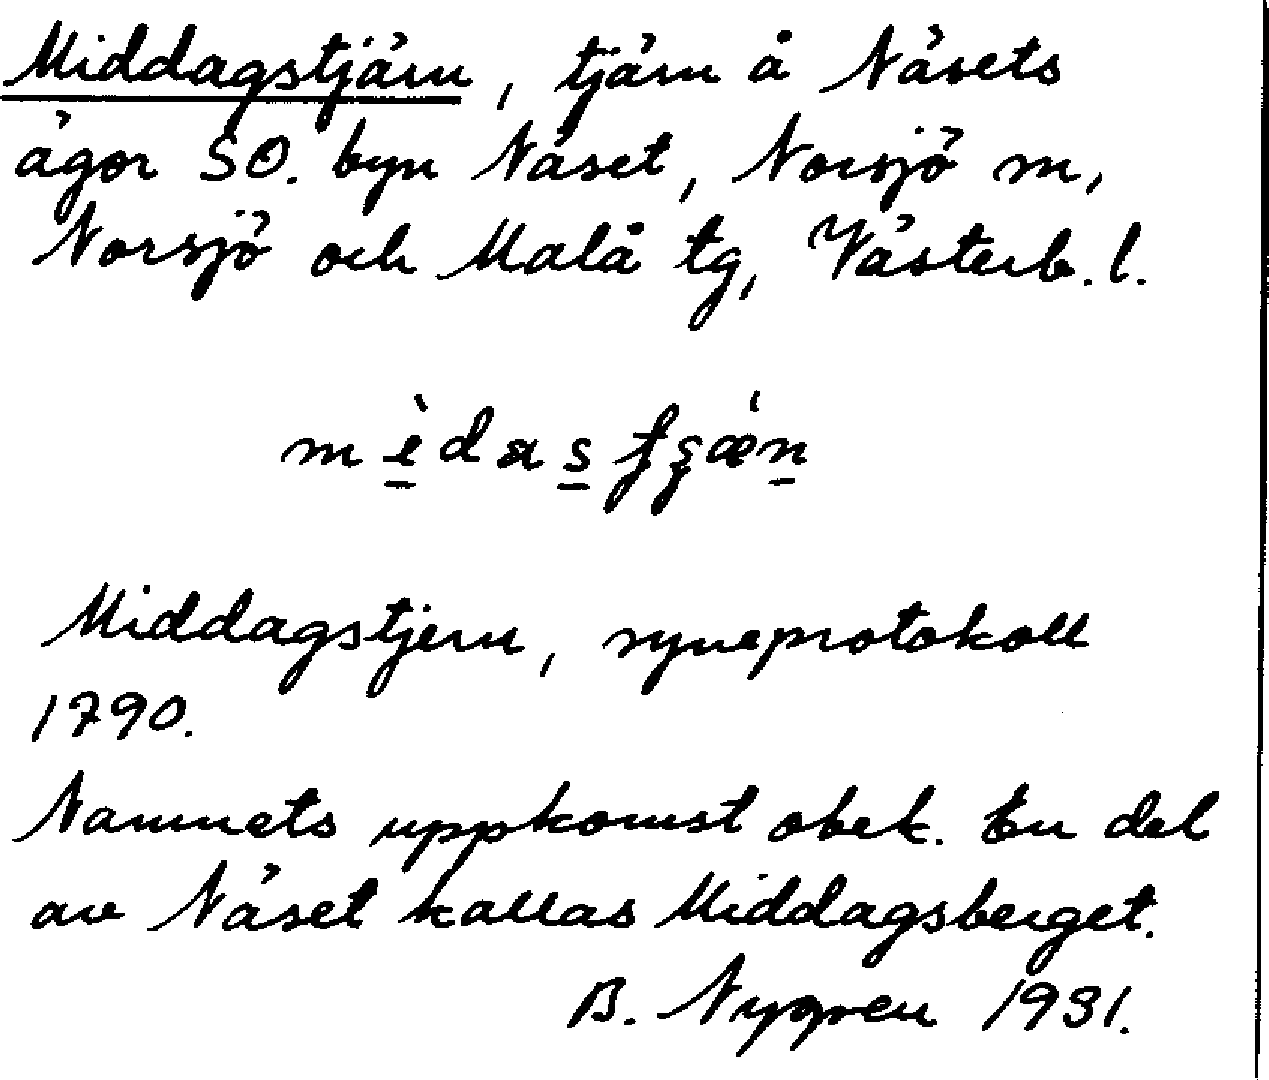 Middagstjärn, tjärn å Näsets
ägor SO. byn Näset, Norsjö m,
Norsjö och Malå tg, Västerb. l.
Middagstjern, syneprotokoll
1790.
Namnets uppkomst obek. En del
av Näset kallas Middagsberget.
B. Nygren 1931.